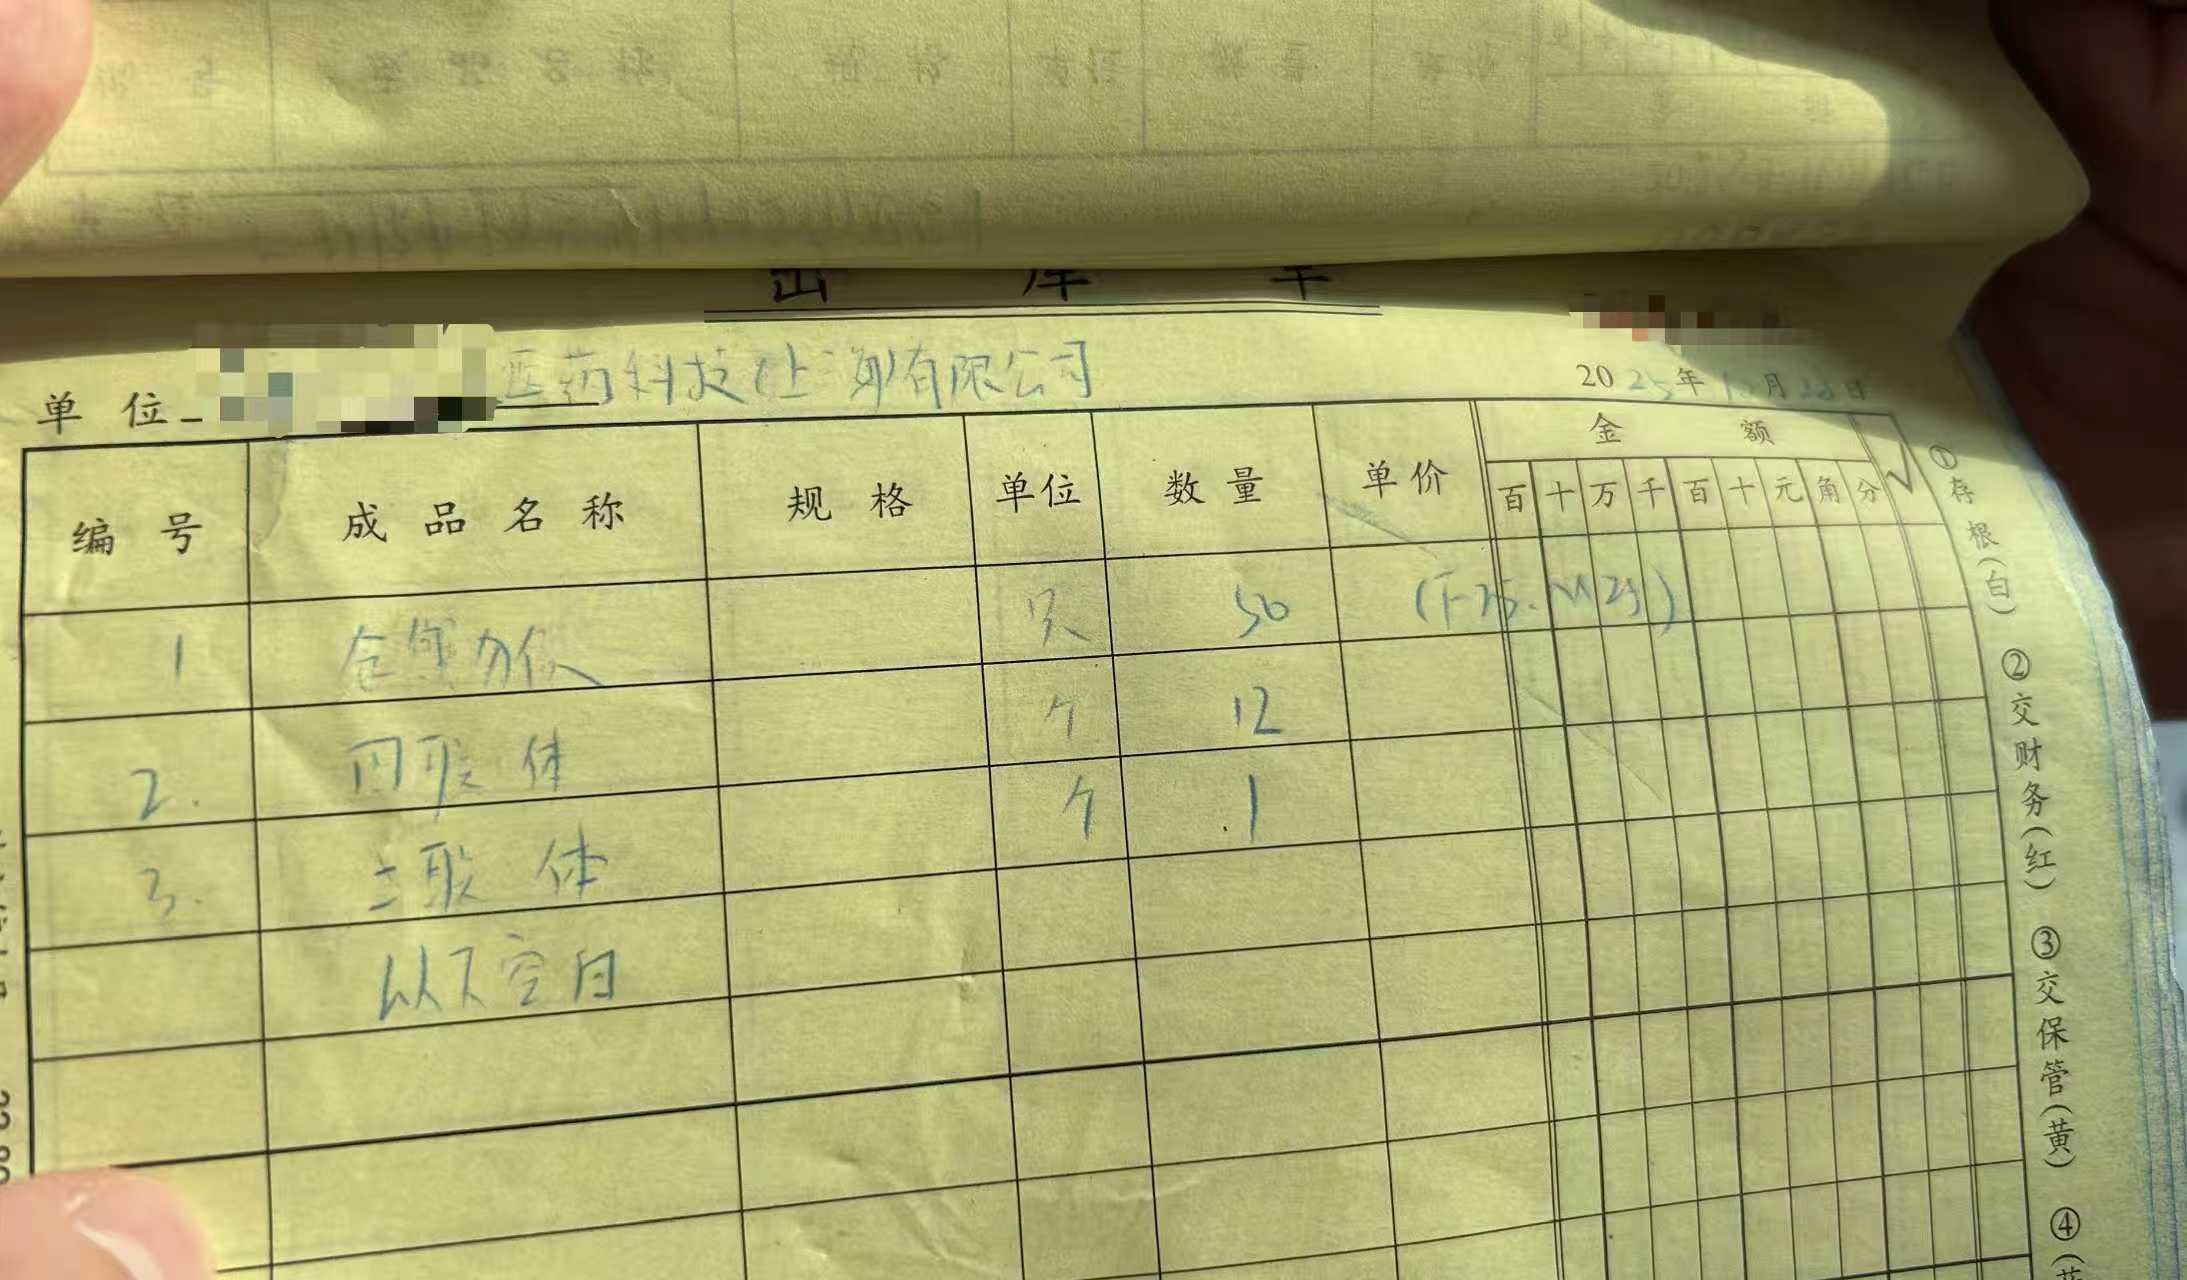 出库单
单位 医药科技(上海)有限公司 2025年 月28日
编号 成品名称 规格 单位 数量 单价 金额 √
百 十 万 千 百 十 元 角 分
1 只 50
2. 四联体 个 12
3. 三联体 个 1
以下空白
①存根(白) ②交财务(红) ③交保管(黄) ④(